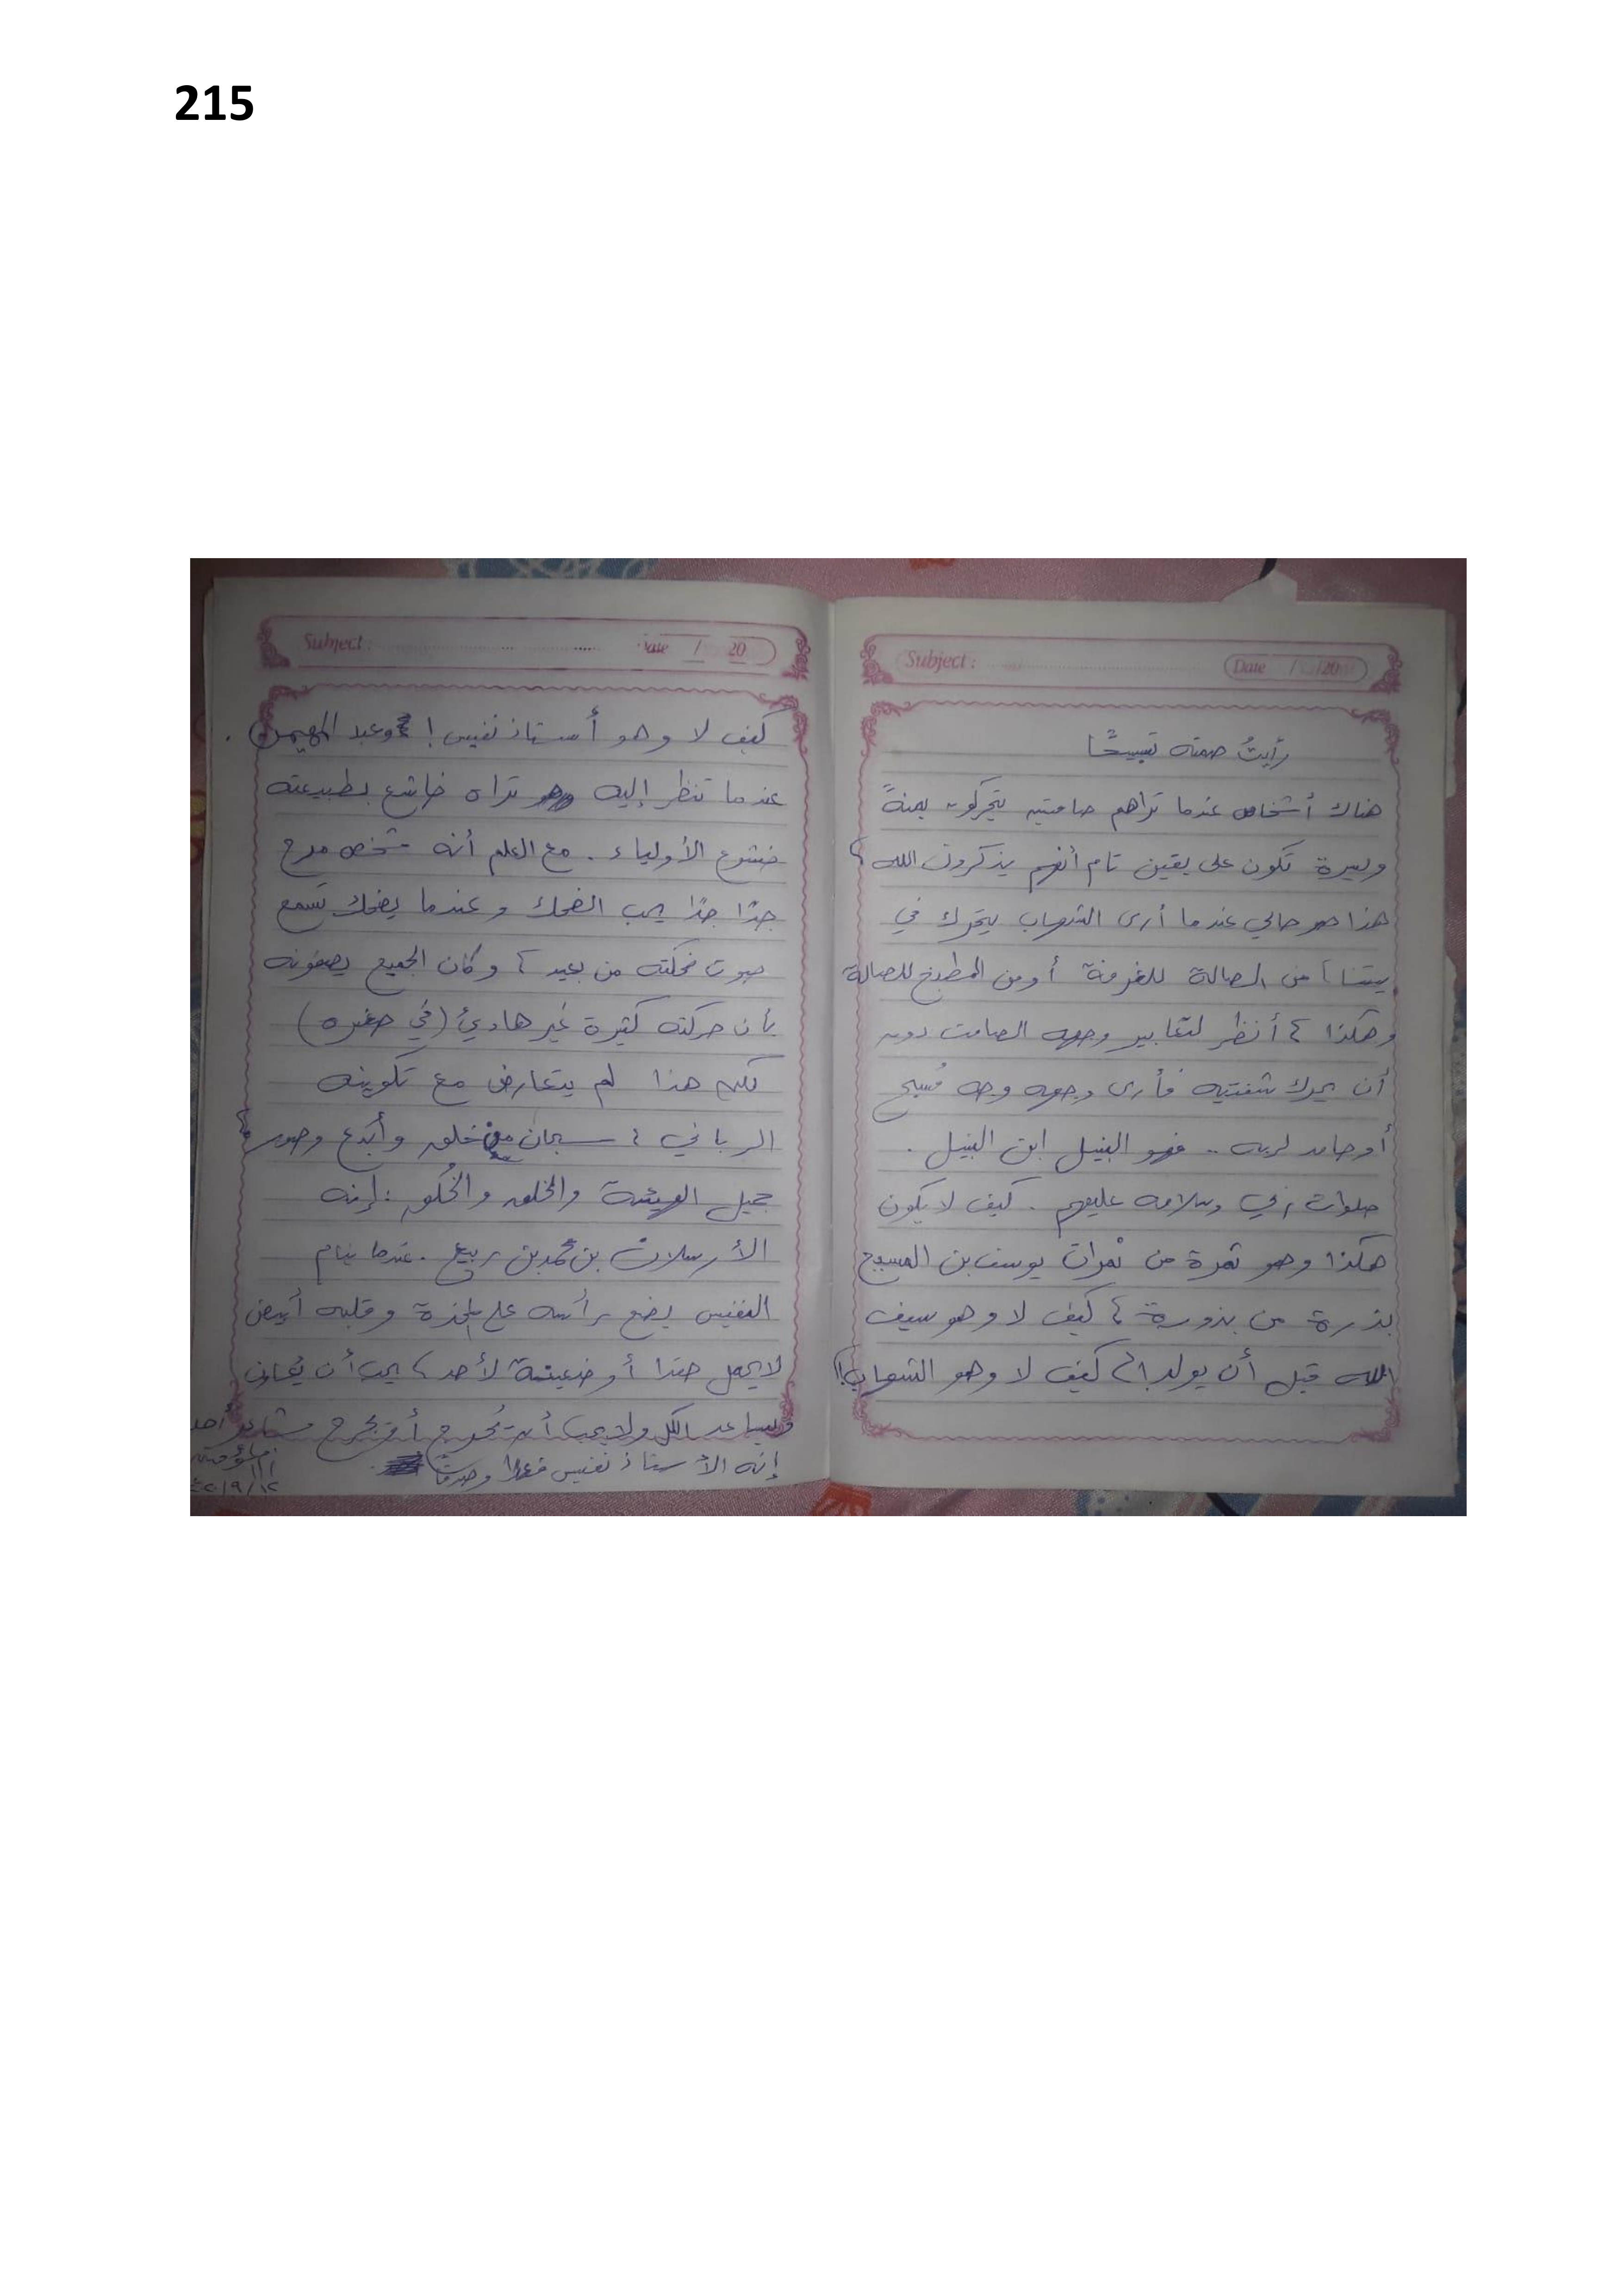 215
Subject : Date / /20
رأيتُ صمته تسبيحًا
هناك أشخاص عندما تراهم صامتين يتحركون يمنةً
ويسرة تكون على يقين تام أنهم يذكرون الله ،
هذا هو حالي عندما أرى الشهاب يتحرك في
بيتنا ، من الصالة للغرفة أو من المطبخ للصالة
وهكذا ، أنظر لتعابير وجهه الصامت دون
أن يحرك شفتيه فأرى وجهه وجه مُسبح
أو حامد لربه .. فهو النبيل ابن النبيل .
صلوات ربي وسلامه عليهم . كيف لا يكون
هكذا وهو ثمرة من ثمرات يوسف بن المسيح
بذرة من بذوره ، كيف لا وهو سيف
الله قبل أن يولد !، كيف لا وهو الشهاب !
Subject : Date / 20
كيف لا وهو أستاذ نفيس ! وعبد المهيمن .
عندما تنظر إليه تراه خاشع بطبيعته
خشوع الأولياء . مع العلم أنه شخص مرح
جدًا جدًا يحب الضحك وعندما يضحك تسمع
صوت ضحكته من بعيد ، وكان الجميع يصفونه
بأن حركته كثيرة غير هادئ (في صغره)
لكن هذا لم يتعارض مع تكوينه
الرباني ، سبحان من خلق وأبدع وصور ،
جميل الهيئة والخلق والخُلق : إنه
الأرسلان بن محمد بن ربيع . عندما ينام
النفيس يضع رأسه على المخدة وقلبه أبيض
لا يحمل حقدا أو ضغينة لأحد ، يحب أن يُعاون
ويساعد الكل ولا يحب أن يُحرج أو يجرح مشاعر أحد
إنه الأستاذ نفيس فعلا وصدقًا .